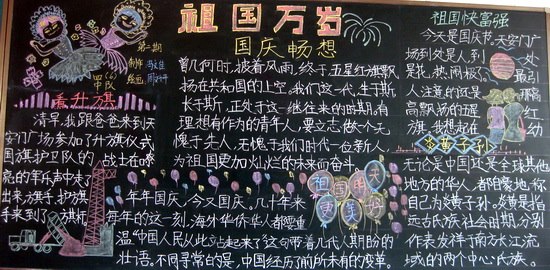 祖国万岁
国庆畅想
曾几何时,披着风雨,终于,五星红旗飘
扬在共和国的上空。我们这一代,生于斯
长于斯,正处于这一继往来的时期。有
理想有作为的青年人,要立志做一个无
愧于先人,无愧于我们时代一台新人,
为祖国更加灿烂的未来而奋斗。
第一期
中队
看升旗
清早,我跟爸爸来到天
安门广场参加了升旗仪式
国旗护卫队的战士在嘹
亮的军乐声中走了
出来,旗手、护旗
手来到了升旗杆
年年国庆,今又国庆。几十年来
每年的这一刻,海外华侨华人都要重
温“中国人民从此站起来了这句带着几代人期盼的
壮语。不同寻常的是,中国经历了前所未有的变革。
祖国明天
更美好
祖国快富强
今天是国庆节,天安门广
场到处是人到处
是花,热闹极了最引
人注意的是那幅
高飘扬的五星红
旗,我想起在动
炎黄子孙
无论是中国还是全球其他
地方的华人,都骄傲地称
自己为炎黄子孙。炎黄是指
远古氏族社会时期,分别
作表发祥于南方长江流
域的两个中心氏族。